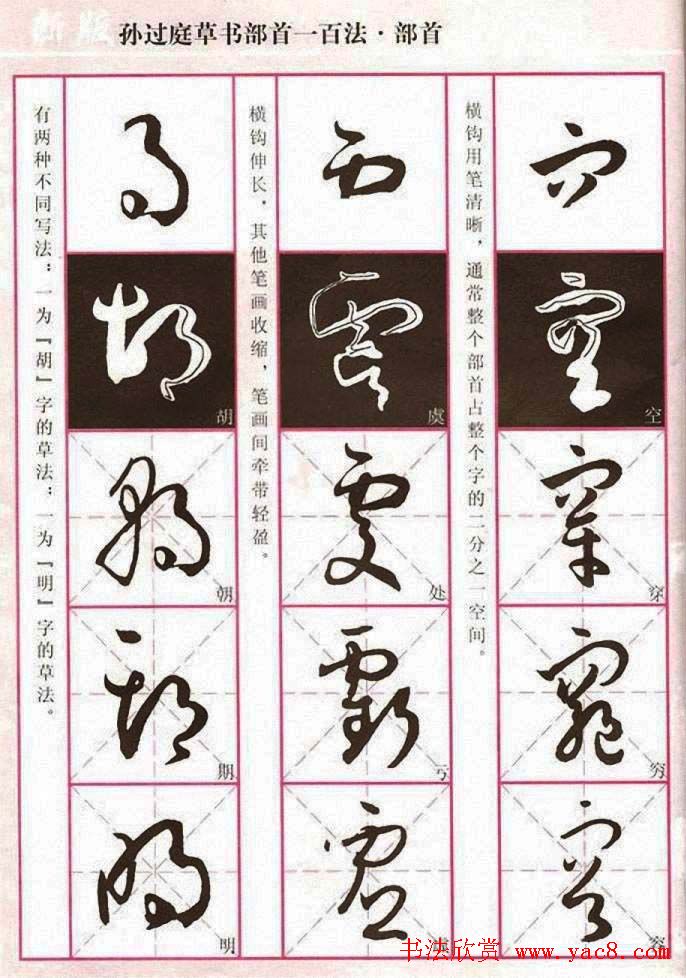 新版
孙过庭草书部首一百法·部首
横钩用笔清晰，通常整个部首占整个字的二分之一空间。
空
穿
穷
横钩伸长，其他笔画收缩，笔画间牵带轻盈。
虞
处
亏
有两种不同写法：一为『胡』字的草法；一为『明』字的草法。
胡
朝
期
明
书法欣赏 www.yac8.com